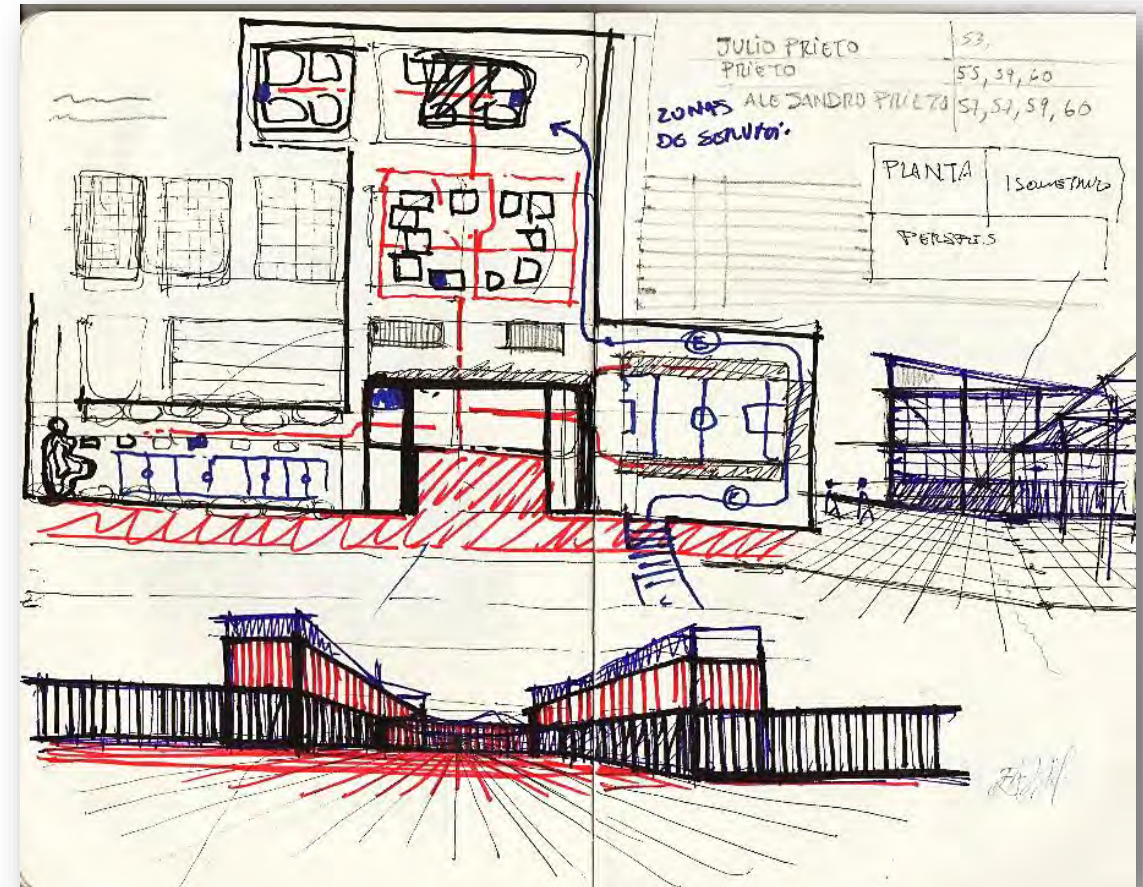 JULIO PRIETO 53,
PRIETO 55, 59, 60
ALESANDRO PRIETO 57, 57, 59, 60
ZONAS
DE SERVICI.
PLANTA
ISOMETRICO
E
E